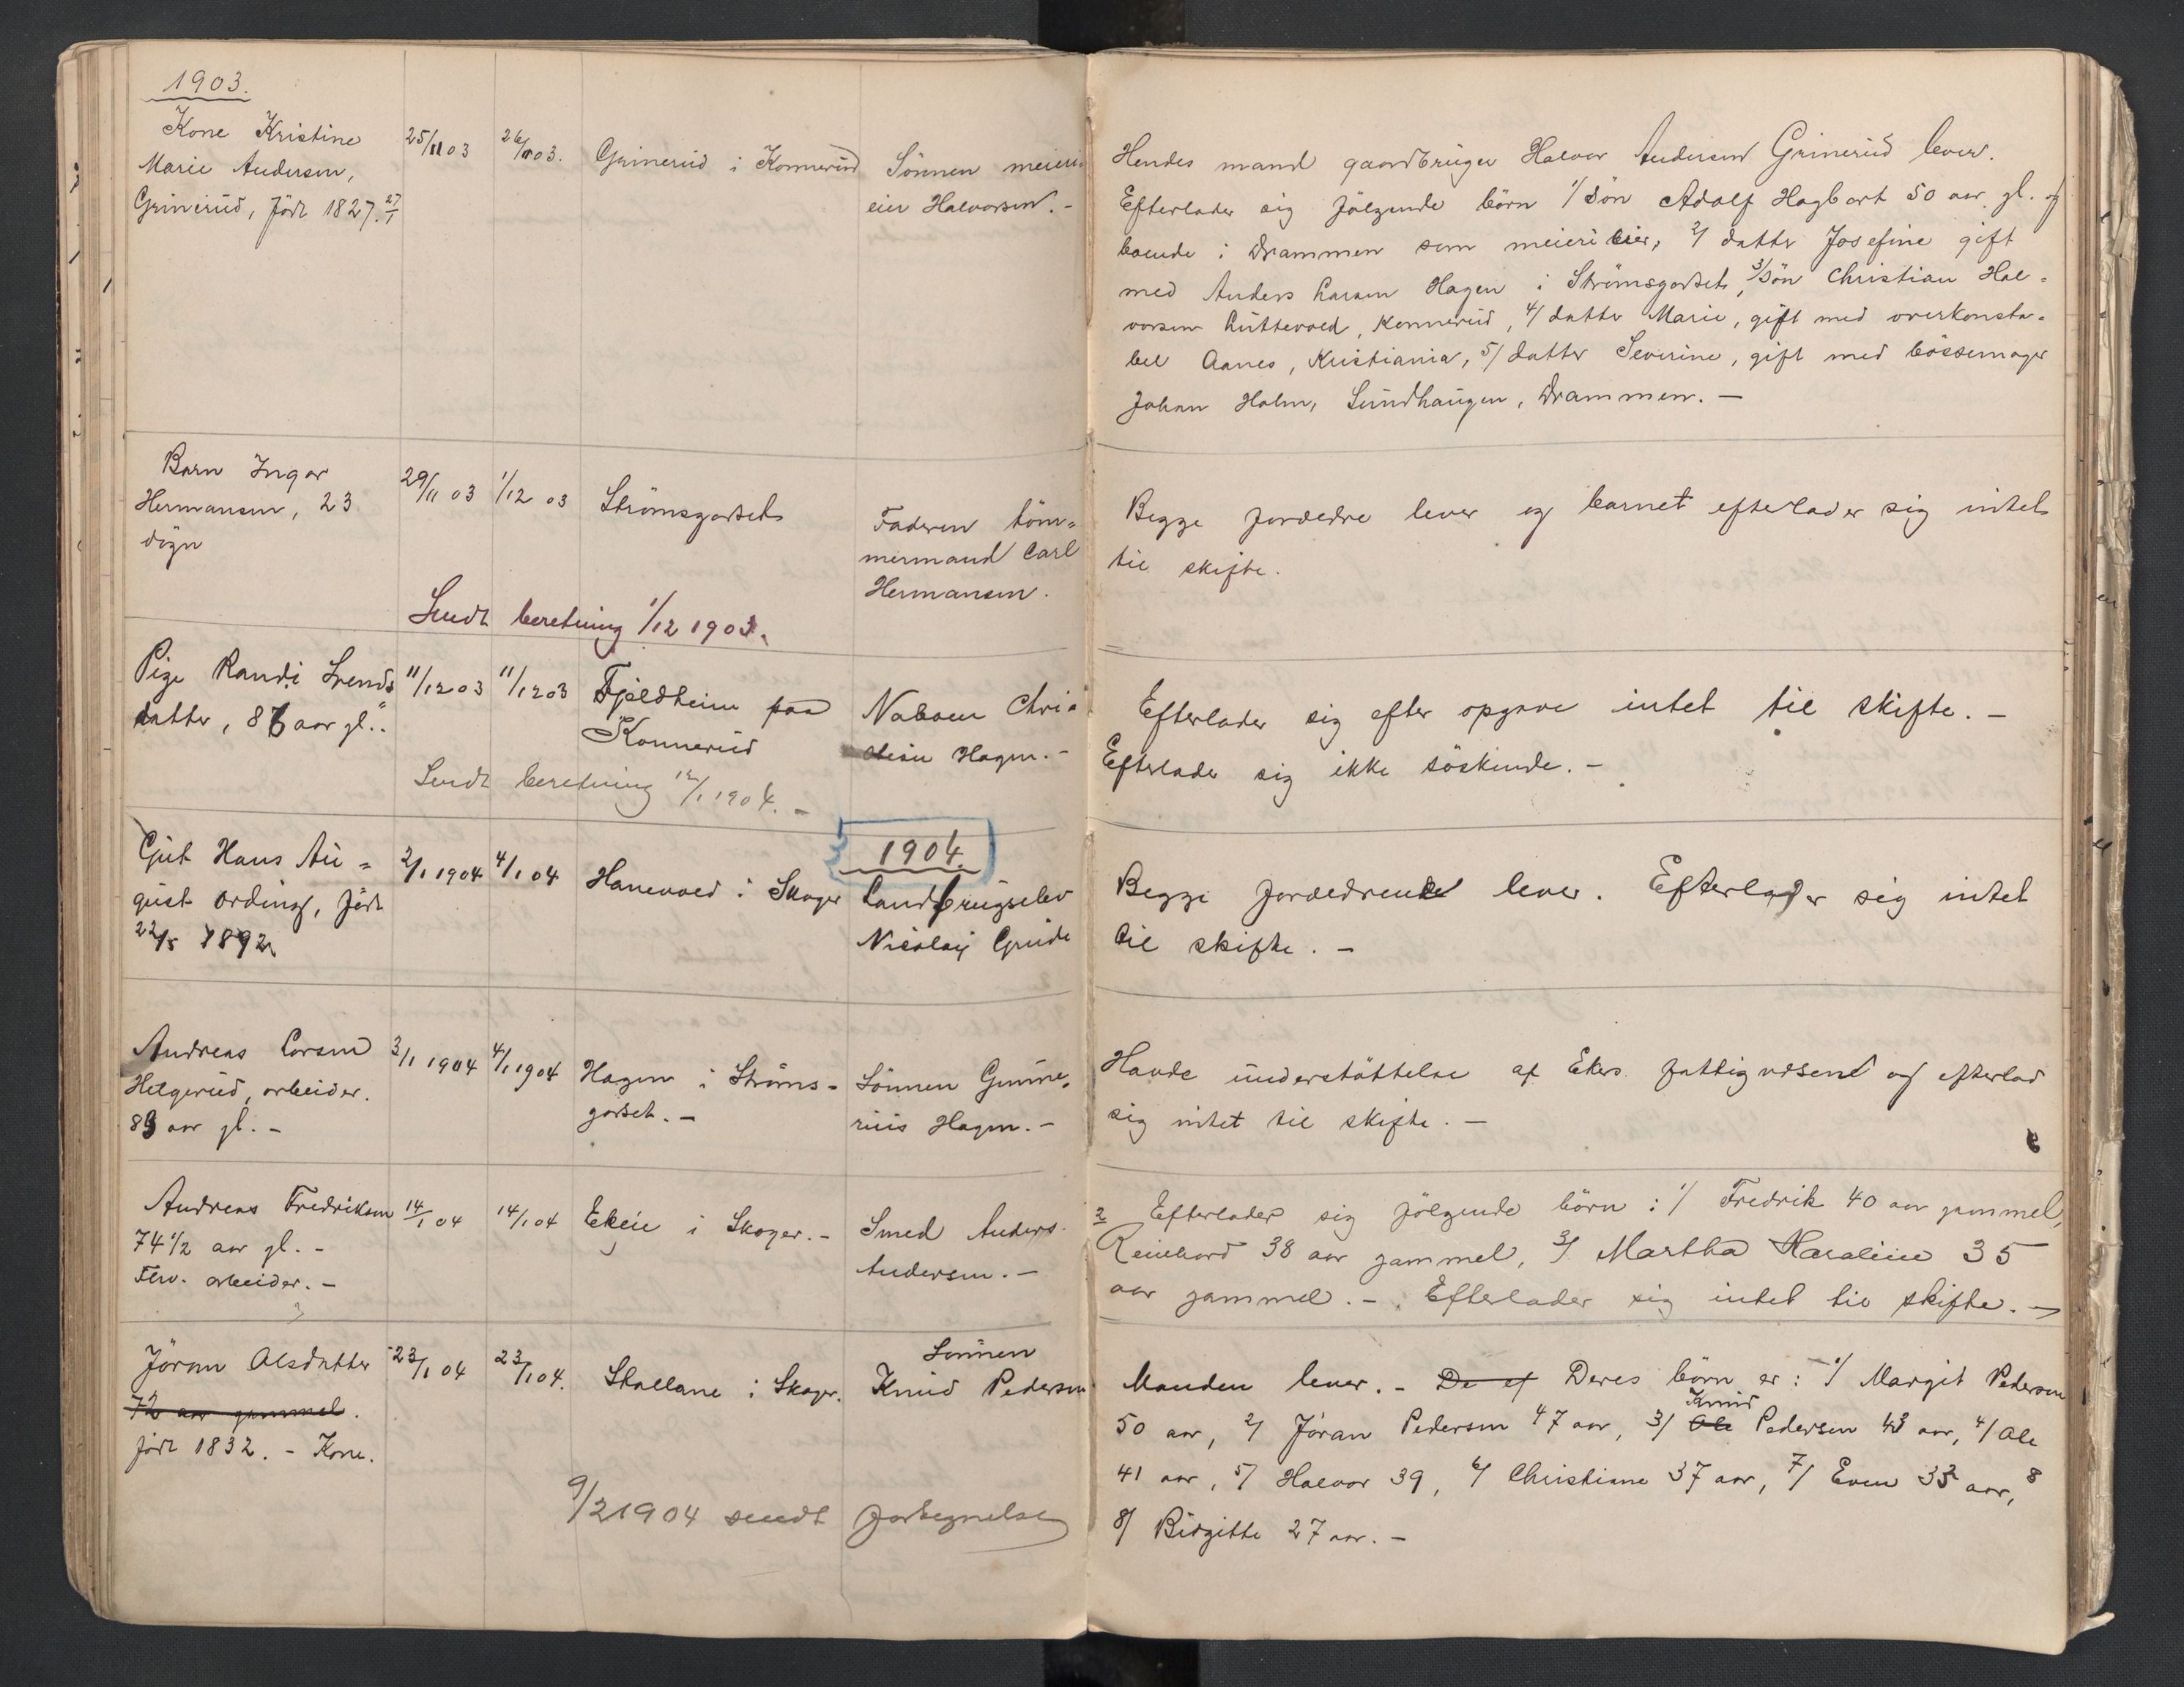 1903.
Kone Kristine
Marie Andersen,
Grinerud, född 1827. 27/1
25/11 03
26/11 03.
Grinerud i Konnerud
Sönnen meieri
eier Halvorsen. -
Hendes mand gaardbruger Halvor Andersen Grinerud lever.
Efterlader sig fölgende börn 1/ Sön Adolf Hagbart 50 aar gl. og
boende i Drammen som meieri eier, 2/ datter Josefine gift
med Anders Larsen Hagen i Strömsgodset, 3/ Sön Christian Hal-
vorsen Luttevold, Konnerud, 4/ datter Marie, gift med overkonsta-
bel Aanes, Kristiania, 5/ datter Severine, gift med bössemager
Johan Holm, Sundhaugen, Drammen. -
Barn Ingar
Hermansen, 23
dögn
29/11 03
1/12 03
Strömsgodset
Faderen töm-
mermand Carl
Hermansen.
Begge forældre lever og barnet efterlader sig intet
til skifte.
Sendt beretning 1/12 1903.
Pige Randi Svends
datter, 86 aar gl.
11/12 03
11/12 03
Fjeldheim paa
Konnerud
Naboen Chri-
stian Hagen. -
Efterlader sig efter opgave intet til skifte. -
Efterlader sig ikke söskende. -
Sendt beretning 12/1 1904. -
1904.
Gut Hans Au-
gust Ording, födt
22/5 1892
2/1 1904
4/1 04
Hanevold i Skoger
Landbrugselev
Nicolay Gude
Begge forældrene lever. Efterlader sig intet
til skifte. -
Andreas Larsen
Helgerud, arbeider.
83 aar gl. -
3/1 1904
4/1 1904
Hagen i Ströms-
godset. -
Sönnen Gunne-
rius Hagen. -
Havde understöttelse af Ekers fattigvæsen og efterlod
sig intet til skifte. -
Andreas Fredriksen
74 1/2 aar gl. -
Fhv. arbeider. -
14/1 04
14/1 04
Ekeie i Skoger. -
Smed Anders
Andersen. -
Efterlader sig fölgende börn: 1/ Fredrik 40 aar gammel,
2 Reinhard 38 aar gammel, 3/ Martha Karaline 35
aar gammel. - Efterlader sig intet til skifte. -
Jöran Olsdatter
72 aar gammel.
födt 1832. - Kone.
23/1 04
23/1 04.
Skallane i Skoger.
Sönnen
Knud Pedersen
Manden lever. - De ef Deres börn er: 1/ Margit Pedersen
50 aar, 2/ Jöran Pedersen 47 aar, 3/ Ole Knud Pedersen 43 aar, 4/ Ole
41 aar, 5/ Halvor 39, 6/ Christiane 37 aar, 7/ Even 33 aar, 8
8/ Birgitte 27 aar. -
9/2 1904 sendt fortegnelse